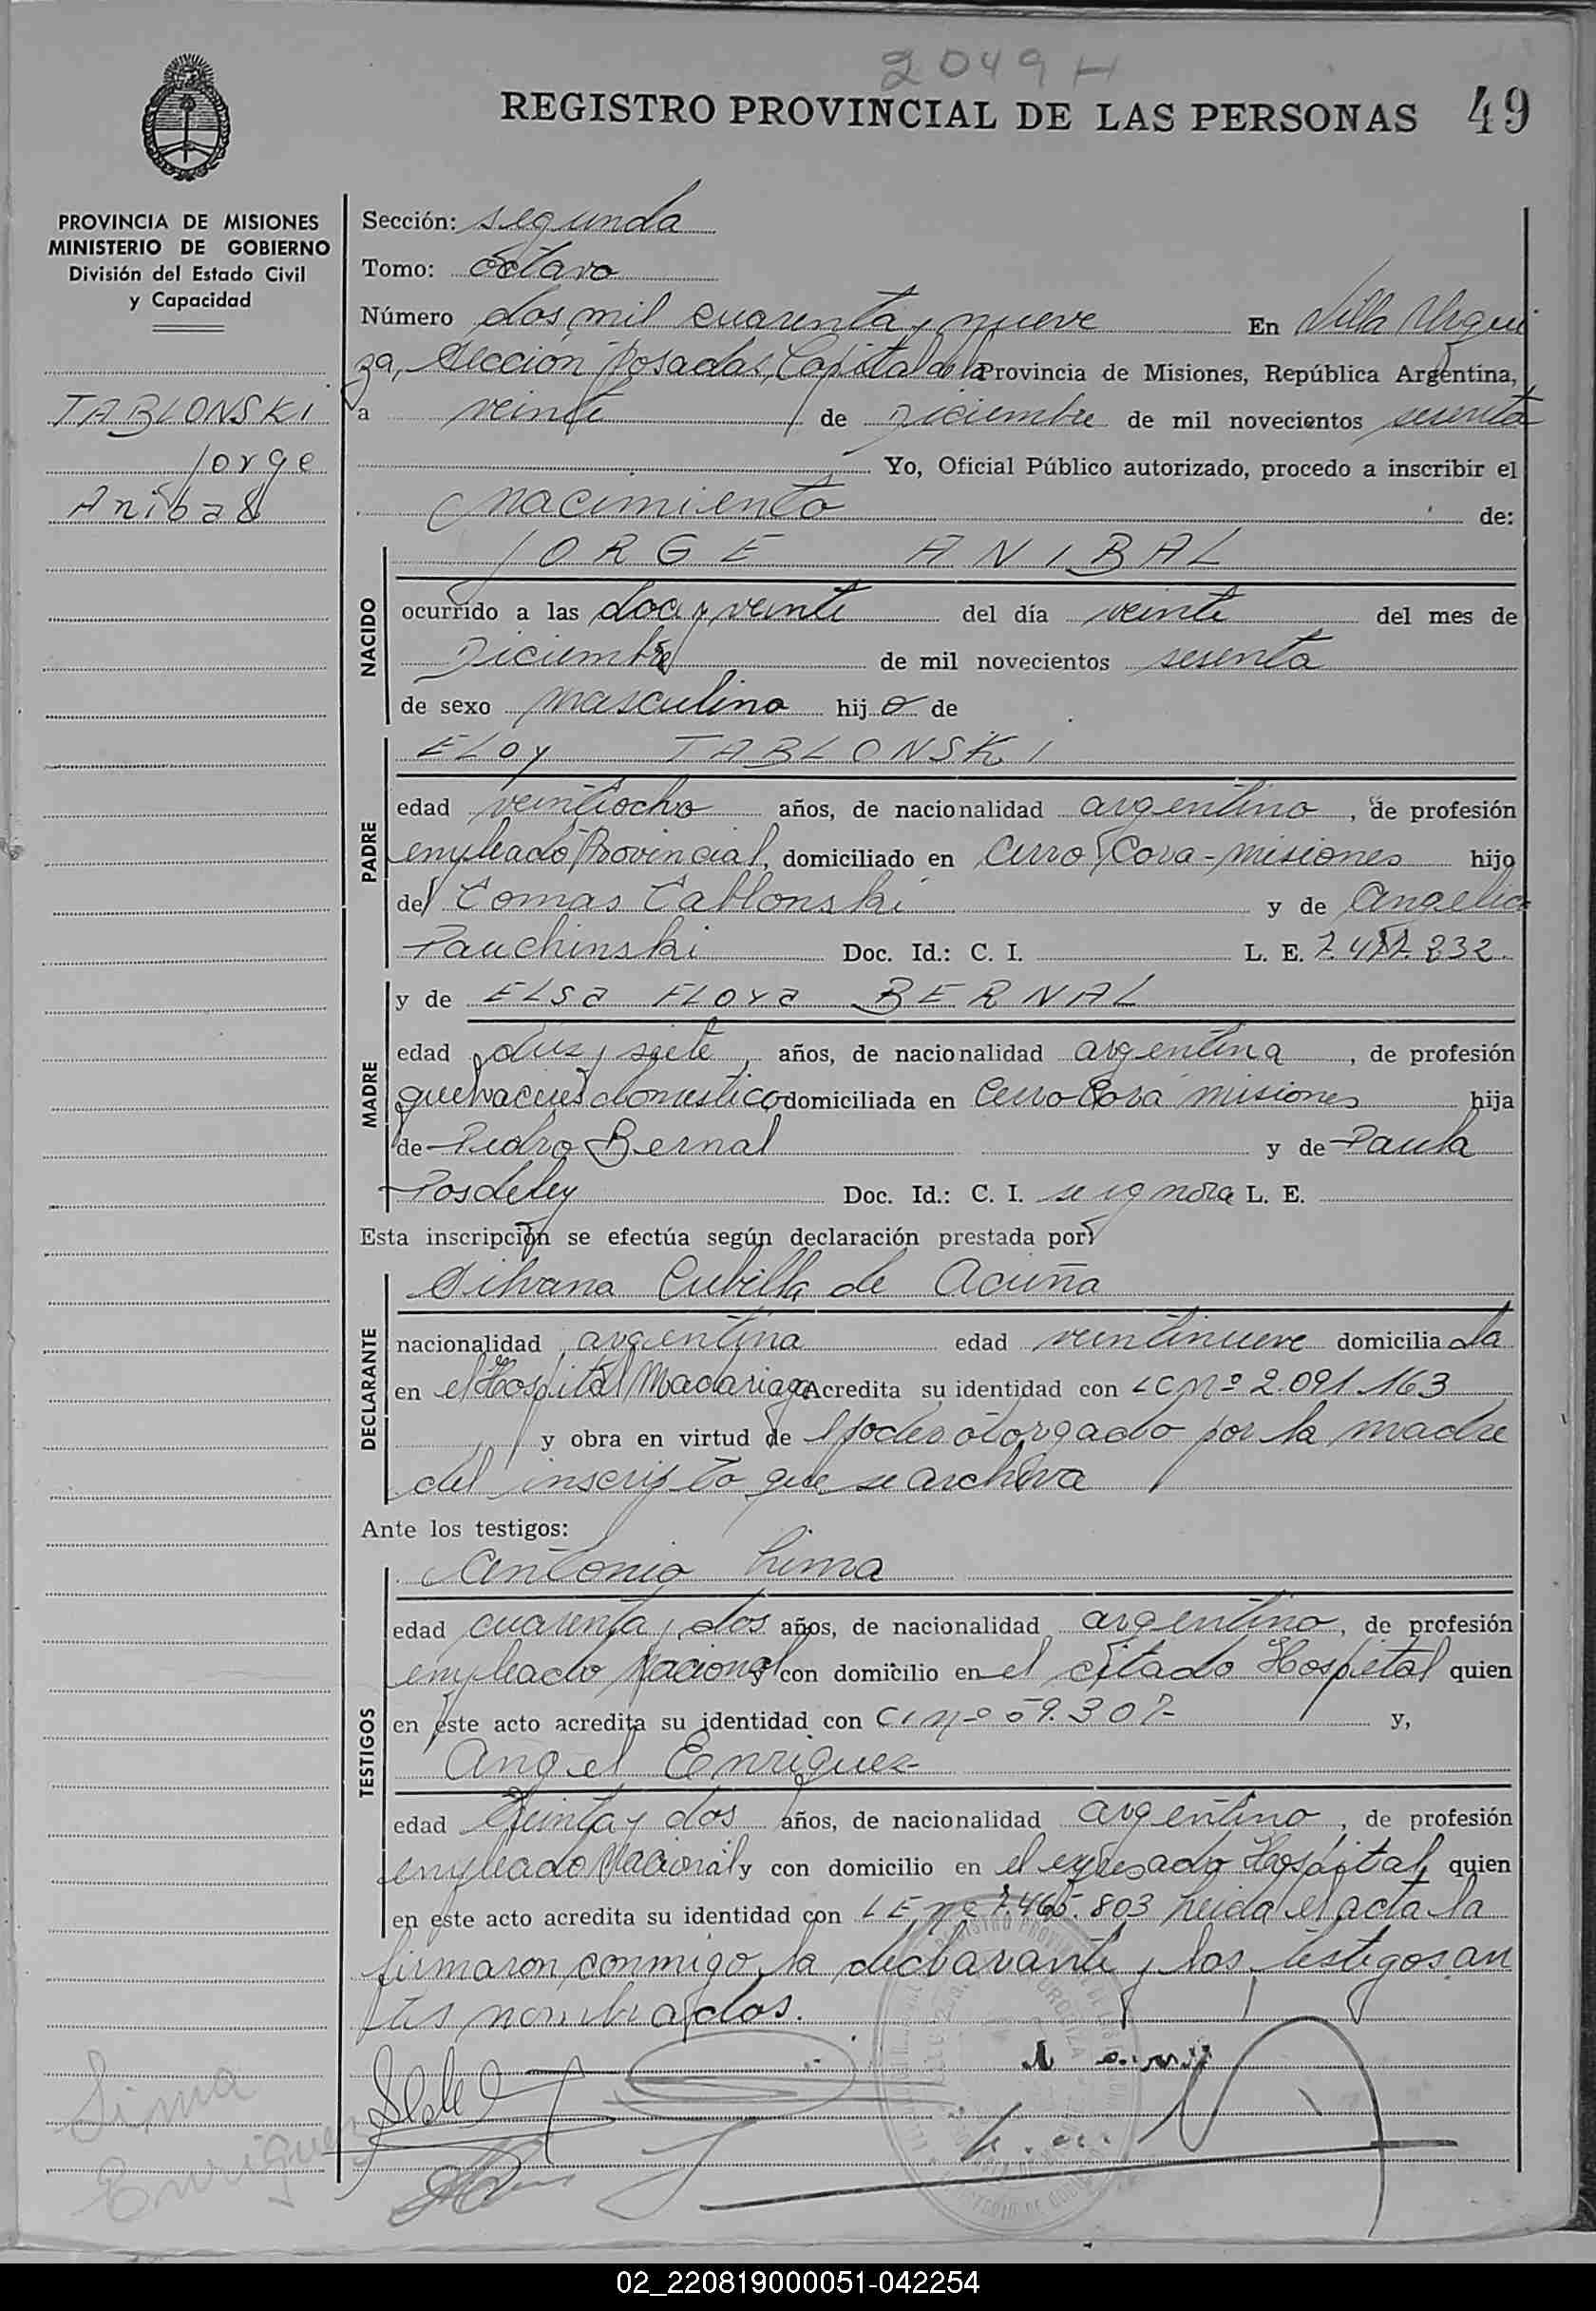 2049 H
REGISTRO PROVINCIAL DE LAS PERSONAS 49
PROVINCIA DE MISIONES
MINISTERIO DE GOBIERNO
División del Estado Civil
y Capacidad
TABLONSKI
Jorge
Anibal
Sección: segunda
Tomo: octavo
Número dos mil cuarenta y nueve En Villa Urqui
za, Sección Posadas, Capital de la Provincia de Misiones, República Argentina,
a veinte de Diciembre de mil novecientos sesenta
Yo, Oficial Público autorizado, procedo a inscribir el
nacimiento de:
NACIDO
JORGE ANIBAL
ocurrido a las doce y veinte del día veinte del mes de
Diciembre de mil novecientos sesenta
de sexo masculino hijo de
PADRE
ELOY TABLONSKI
edad veintiocho años, de nacionalidad argentino, de profesión
empleado Provincial, domiciliado en Cerro Cora - misiones hijo
de Tomas Tablonski y de Angelica
Pauchinski Doc. Id.: C. I. L. E. 232.
MADRE
y de ELSA FLORA BERNAL
edad diez y siete, años, de nacionalidad argentina, de profesión
quehaceres domestico domiciliada en Cerro Cora misiones hija
de Pedro Bernal y de Paula
Posdeley Doc. Id.: C. I. se ignora L. E.
Esta inscripción se efectúa según declaración prestada por
DECLARANTE
Silvana Cubilla de Acuña
nacionalidad argentina edad veintinueve domiciliada
en el Hospital Madariaga Acredita su identidad con LC nº 2.091.163
y obra en virtud de poder otorgado por la madre
del inscripto que se archiva
Ante los testigos:
TESTIGOS
Antonio Lima
edad cuarenta y dos años, de nacionalidad argentino, de profesión
empleado Nacional y con domicilio en el citado Hospital quien
en este acto acredita su identidad con CI nº 59.307- y,
Angel Enriquez
edad treinta y dos años, de nacionalidad argentino, de profesión
empleado Nacional y con domicilio en el expresado Hospital, quien
en este acto acredita su identidad con LE nº 7.465.803 Leida el acta la
firmaron conmigo la declarante y los testigos an
tes nombrados.
Lima
Enriquez
02_220819000051-042254